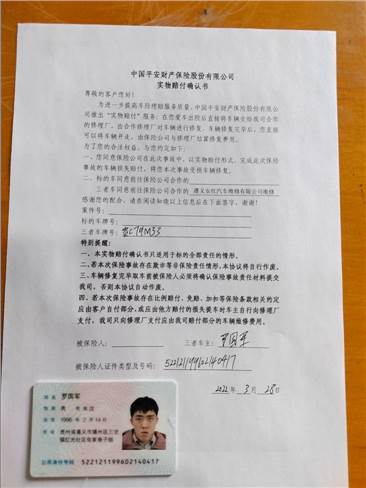 中国平安财产保险股份有限公司
实物赔付确认书
尊敬的客户您好!
为进一步提高车险理赔服务质量,中国平安财产保险股份有限公司
推出“实物赔付”服务:在您爱车出险后直接将车辆交给我司合作
的修理厂,由合作修理厂对车辆进行修复,车辆修复完毕后,您直接
可以将车辆开走,由保险公司与修理厂结算修复费用。
为了您的合法权益,与您约定如下:
一、您同意保险公司在此次事故中,以实物赔付形式,完成此次保险
事故的车辆损失赔付,将您本次事故受损车辆修复。
二、标的车同意前往保险公司合作的
三者车同意前往保险公司合作的 遵义友红汽车维修有限公司维修
感谢您的配合,请在阅读知晓以上信息后在下面签字,谢谢!
案件号:
标的车牌号:
三者车牌号: 贵C79M33
特别提醒:
一、本实物赔付确认书只适用于标的全部责任的情形。
二、若本次保险事故存在欺诈等非保险责任情形,本协议将自行作废。
三、车辆修复完毕取车前被保险人必须将确认保险事故责任材料提交
我司,否则本协议自动作废。
四、若本次保险事故存在比例赔付、免赔、加扣等保险条款相关的定
应由客户自付部分,或应由他方赔付的损失拔车时车主自行向修理厂
支付,我司只向修理厂支付应由我司赔付部分的车辆维修费用。
被保险人: 三者车主: 罗国军
被保险人证件类型及号码: 522121199602140417
2022 年 3 月 28 日
姓名 罗国军
性别 男 民族 汉
出生 1996 年 2 月 14 日
贵州省遵义市播州区三岔
镇红光社区
公民身份号码 522121199602140417